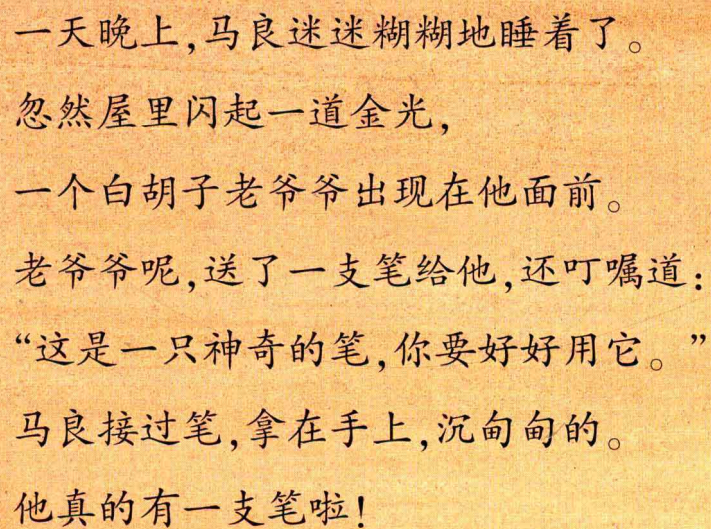 一天晚上,马良迷迷糊糊地睡着了。
忽然屋里闪起一道金光,
一个白胡子老爷爷出现在他面前。
老爷爷呢,送了一支笔给他,还叮嘱道:
“这是一只神奇的笔,你要好好用它。”
马良接过笔,拿在手上,沉甸甸的。
他真的有一支笔啦!